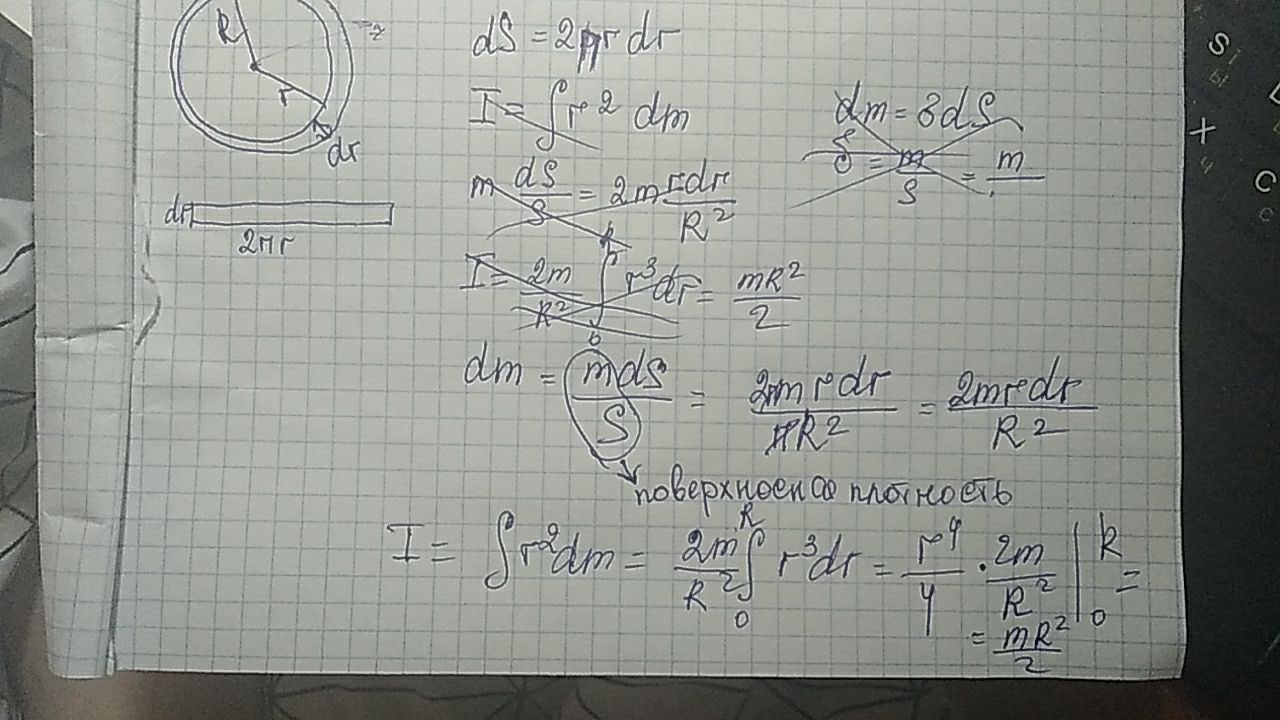 R
r
dr
dr
2πr
dS = 2πr dr
I = ∫ r² dm
dm = σdS
σ = m/S = m/
m dS/S = 2m rdr/R²
I = 2m/R² ∫₀ᴿ r³dr = mR²/2
dm = mdS/S = 2πm r dr/πR² = 2mrdr/R²
поверхносная плотность
I = ∫ r²dm = 2m/R² ∫₀ᴿ r³dr = r⁴/4 · 2m/R² |₀ᴿ =
= mR²/2